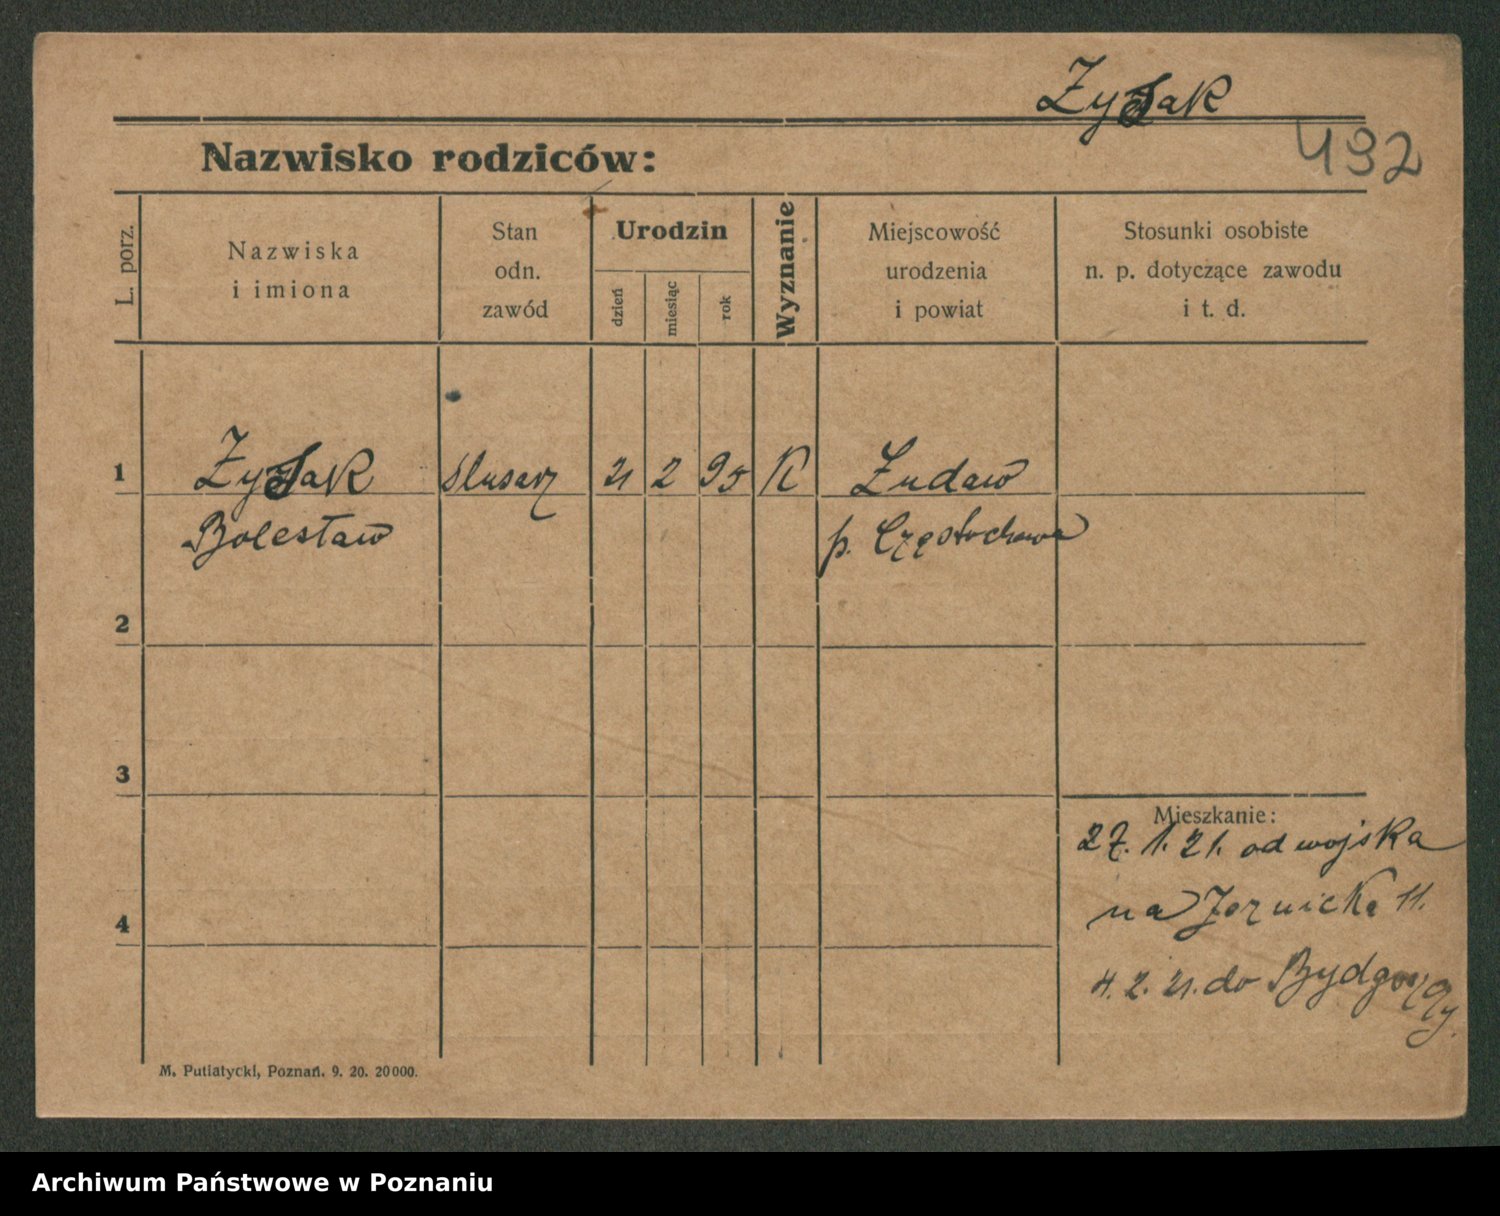 Zyzak
492
Nazwisko rodziców:
L. porz.
Nazwiska
i imiona
Stan
odn.
zawód
Urodzin
dzień
miesiąc
rok
Wyznanie
Miejscowość
urodzenia
i powiat
Stosunki osobiste
n. p. dotyczące zawodu
i t. d.
1
Slusarz 21 2 95 K
Bolesław
p. Częstochowa
2
3
4
Mieszkanie:
27. 1. 21. od wojska
na 11.
4. 2. 21. do Bydgoszczy.
M. Putiatycki, Poznań. 9. 20. 20000.
Archiwum Państwowe w Poznaniu